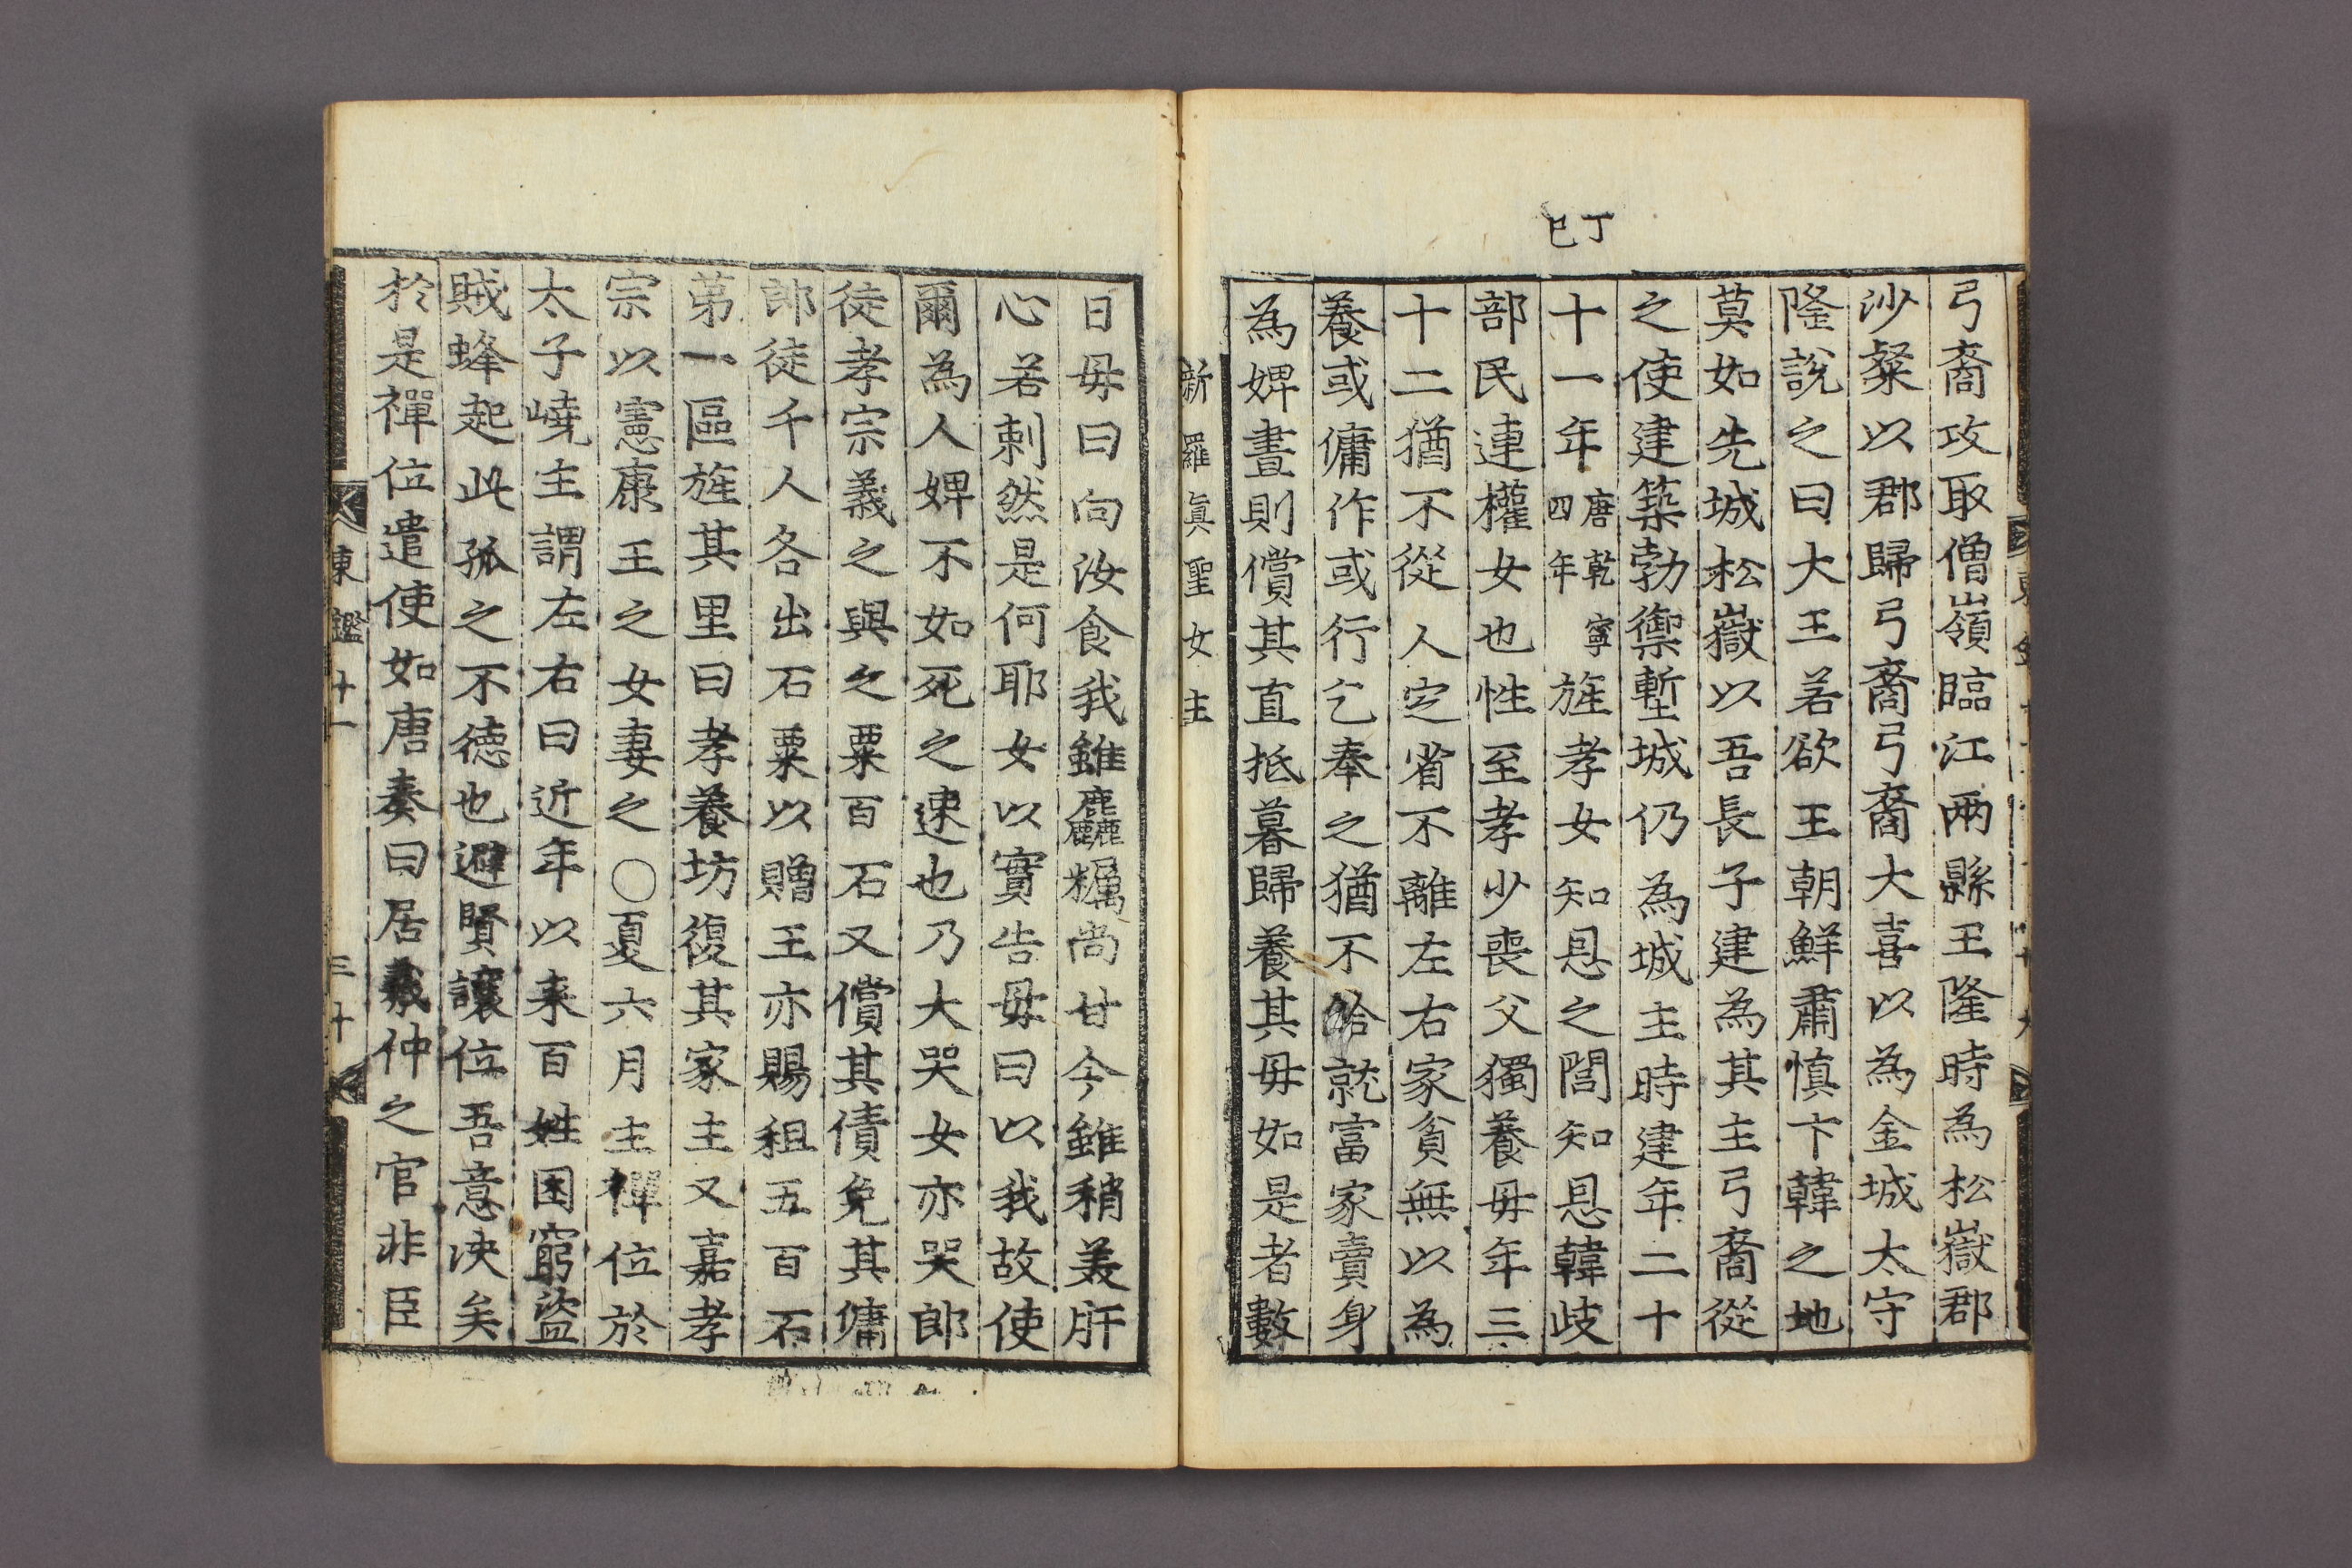 丁巳
弓裔攻取僧嶺臨江兩縣王隆時為松嶽郡
沙粲以郡歸弓裔弓裔大喜以為金城太守
隆說之曰大王若欲王朝鮮肅愼卞韓之地
莫如先城松嶽以吾長子建為其主弓裔從
之使建築勃禦塹城仍為城主時建年二十
十一年唐乾寧四年旌孝女知恩之閭知恩韓歧
部民連權女也性至孝少喪父獨養毋年三
十二猶不從人定省不離左右家貧無以為
養或傭作或行乞奉之猶不給就富家賣身
為婢晝則償其直抵暮歸養其毋如是者數
新羅眞聖女主
日毋曰向汝食我雖麤糲尚甘今雖稍美肝
心若刺然是何耶女以實告毋曰以我故使
爾為人婢不如死之速也乃大哭女亦哭郎
徒孝宗義之與之粟百石又償其債免其傭
郎徒千人各出石粟以贈王亦賜租五百石
第一區旌其里曰孝養坊復其家主又嘉孝
宗以憲康王之女妻之○夏六月主禪位於
太子嶢主謂左右曰近年以来百姓困窮盜
賊蜂起此孤之不德也避賢讓位吾意决矣
於是禪位遣使如唐奏曰居羲仲之官非臣
東鑑十一 三十